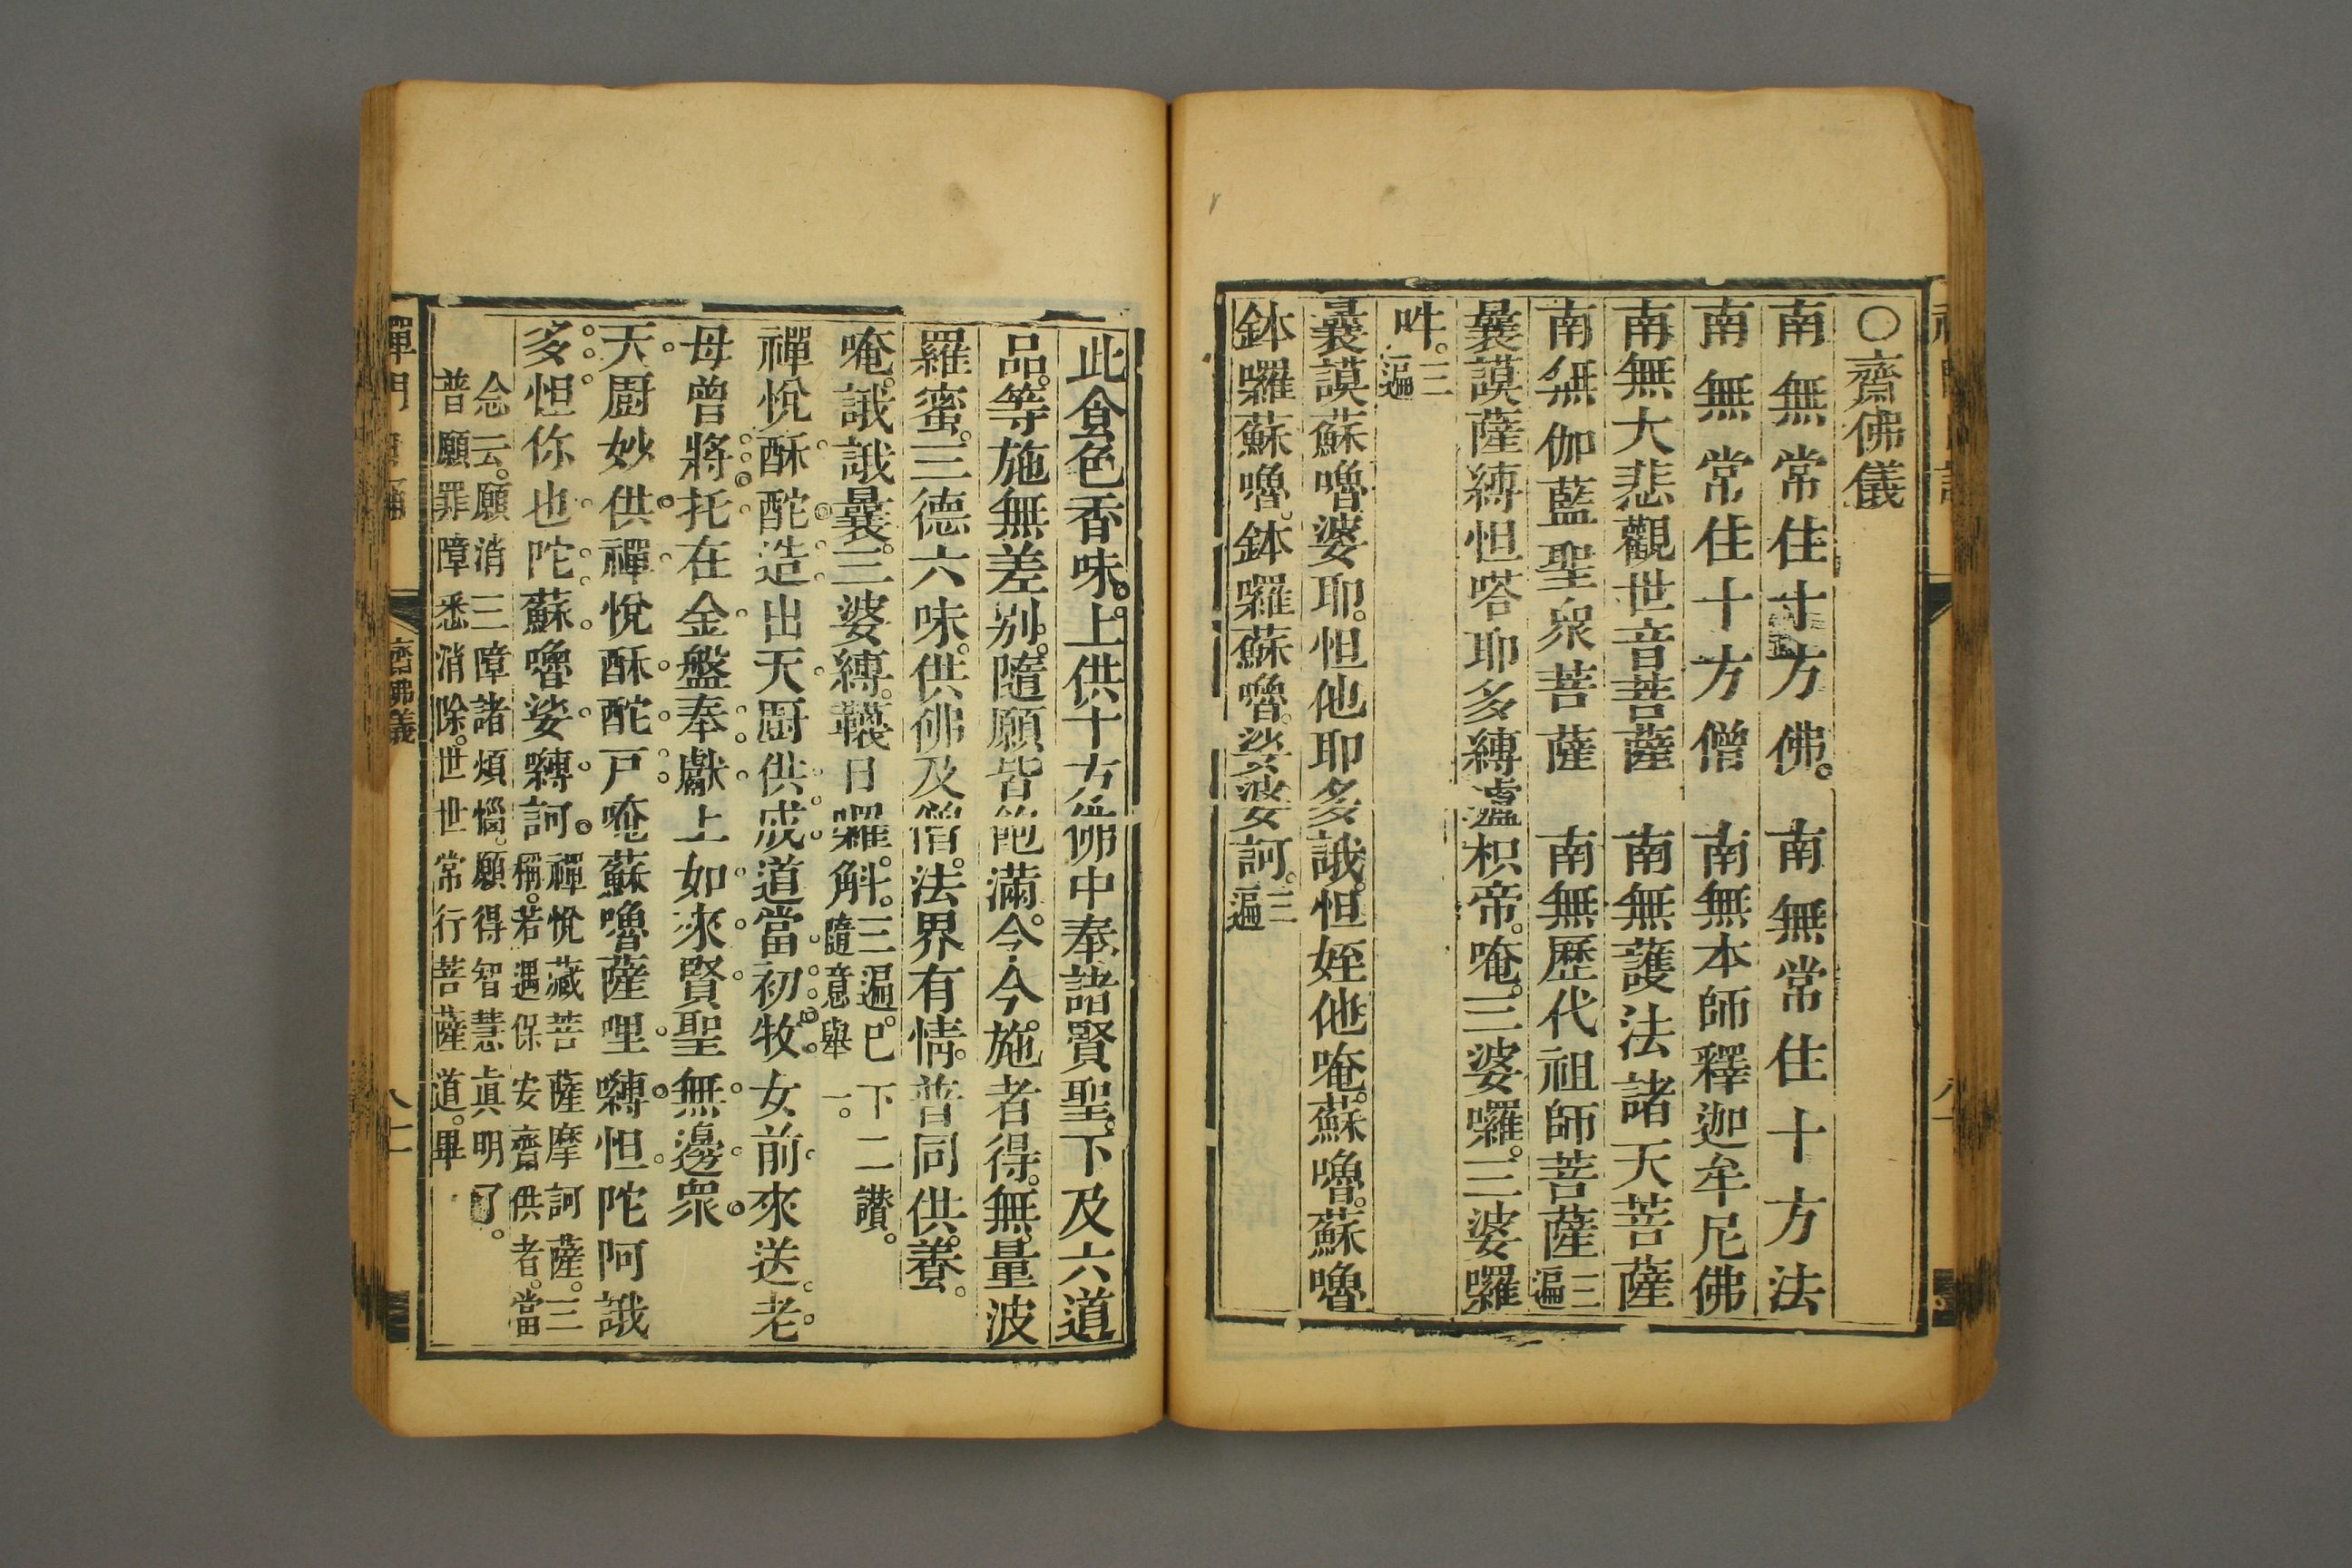 ○齋佛儀
南無常住十方佛。南無常住十方法
南無常住十方僧　南無本師釋迦牟尼佛
南無大悲觀世音菩薩　南無護法諸天菩薩
南無伽藍聖衆菩薩　南無歷代祖師菩薩三遍
曩謨薩縛怛嗒耶多縛嚧枳帝。唵。三婆囉。三婆囉
吽。三遍
曩謨蘇嚕婆耶。怛他耶多誐。怛姪他唵。蘇嚕。蘇嚕
鉢囉蘇嚕。鉢囉蘇嚕。娑婆訶。三遍
此食色香味。上供十方佛中奉諸賢聖。下及六道
品。等施無差别。隨願皆飽滿。今今施者得。無量波
羅蜜。三德六味。供佛及僧。法界有情。普同供養。
唵。誐誐曩。三婆縛。韈日囉。斛。三遍。巳下二讃。
隨意舉一。
禪悅酥酡造出天厨供成道當初牧女前來送老
母曾將托在金盤奉獻上如來賢聖無邊衆
天厨妙供禪悅酥酡戸唵蘇嚕薩哩嚩怛陀阿誐
多怛你也陀蘇嚕娑嚩訶禪悅藏菩薩摩訶薩。三
稱。若遇保安齋供者。當
念云。願消三障諸煩惱。願得智慧眞明了。
普願罪障悉消除。世世常行菩薩道。畢
禪門
齋佛儀